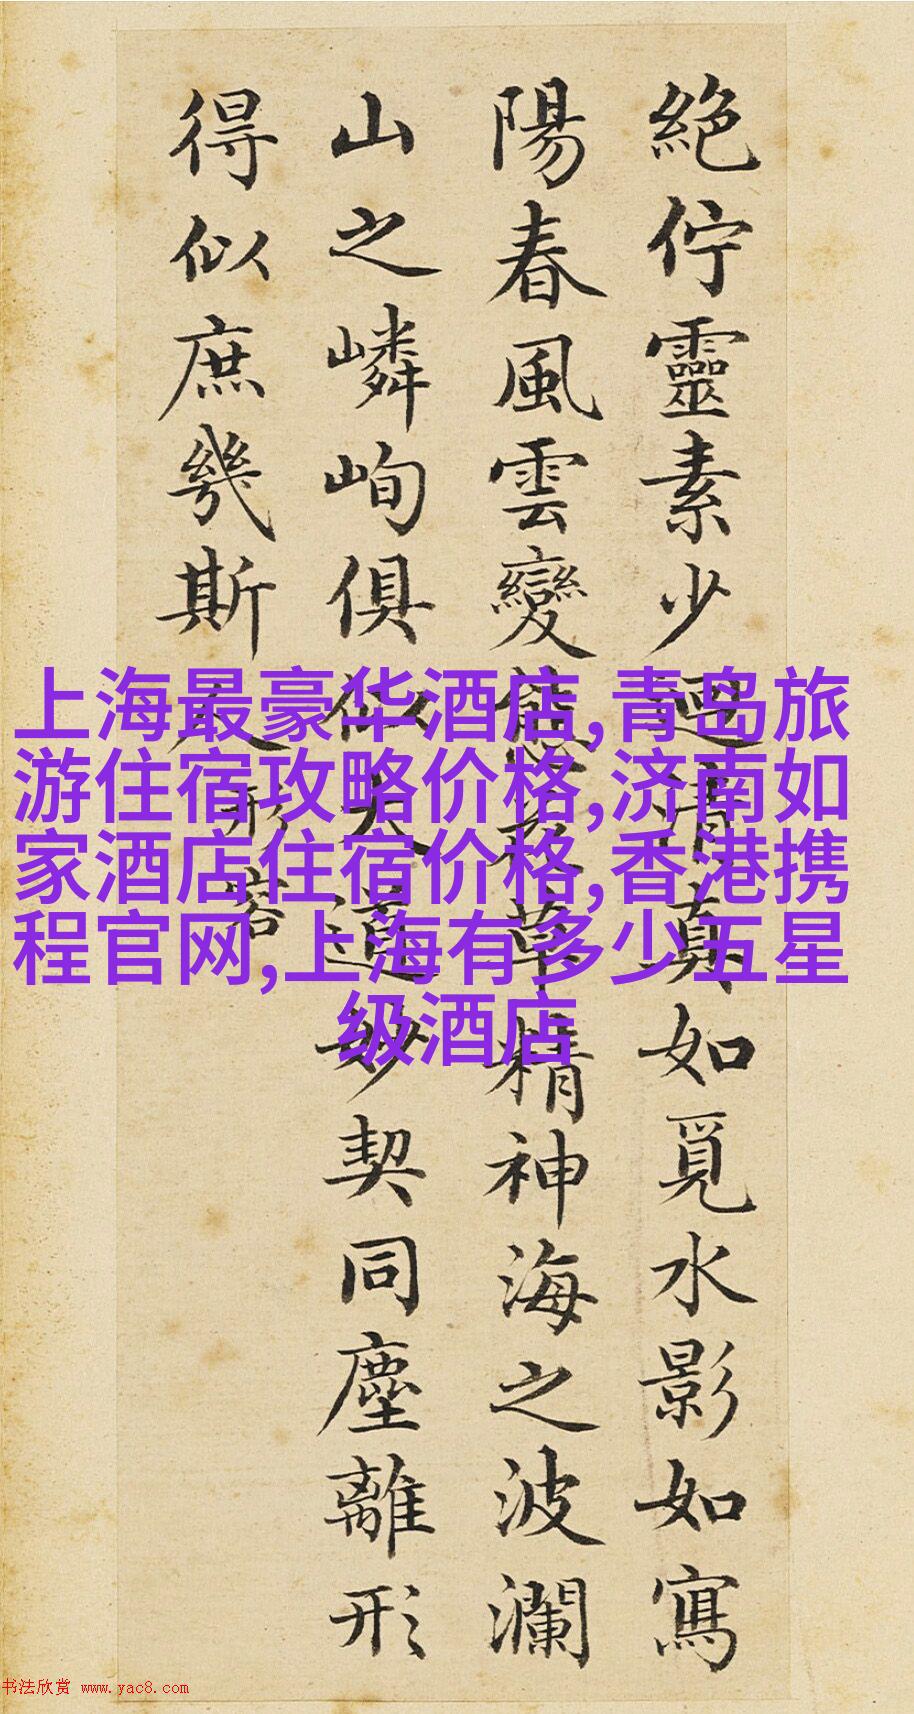 絶佇靈素少迴清真如覓水影如寫
陽春風雲變態花草精神海之波瀾
山之嶙峋俱似大道妙契同塵離形
得似庶幾斯人
形容
上海最豪华酒店,青岛旅
游住宿攻略价格,济南如
家酒店住宿价格,香港携
程官网,上海有多少五星
级酒店
书法欣赏 www.yac8.com